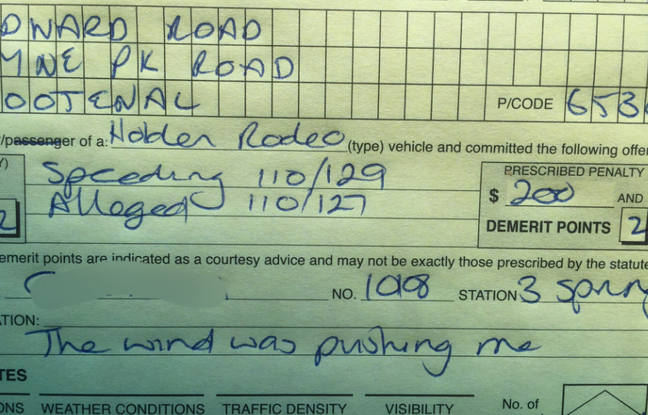 DWARD ROAD
YNE PK ROAD
OOTENAL
P/CODE 653
/passenger of a: Holden Rodeo (type) vehicle and committed the following offen
Y)
Speeding 110/129
Alleged 110/127
PRESCRIBED PENALTY
$ 200 AND
2
DEMERIT POINTS 2
emerit points are indicated as a courtesy advice and may not be exactly those prescribed by the statute
NO. 1018 STATION 3 Spring
ATION:
The wind was pushing me
TES
ONS WEATHER CONDITIONS TRAFFIC DENSITY VISIBILITY No. of